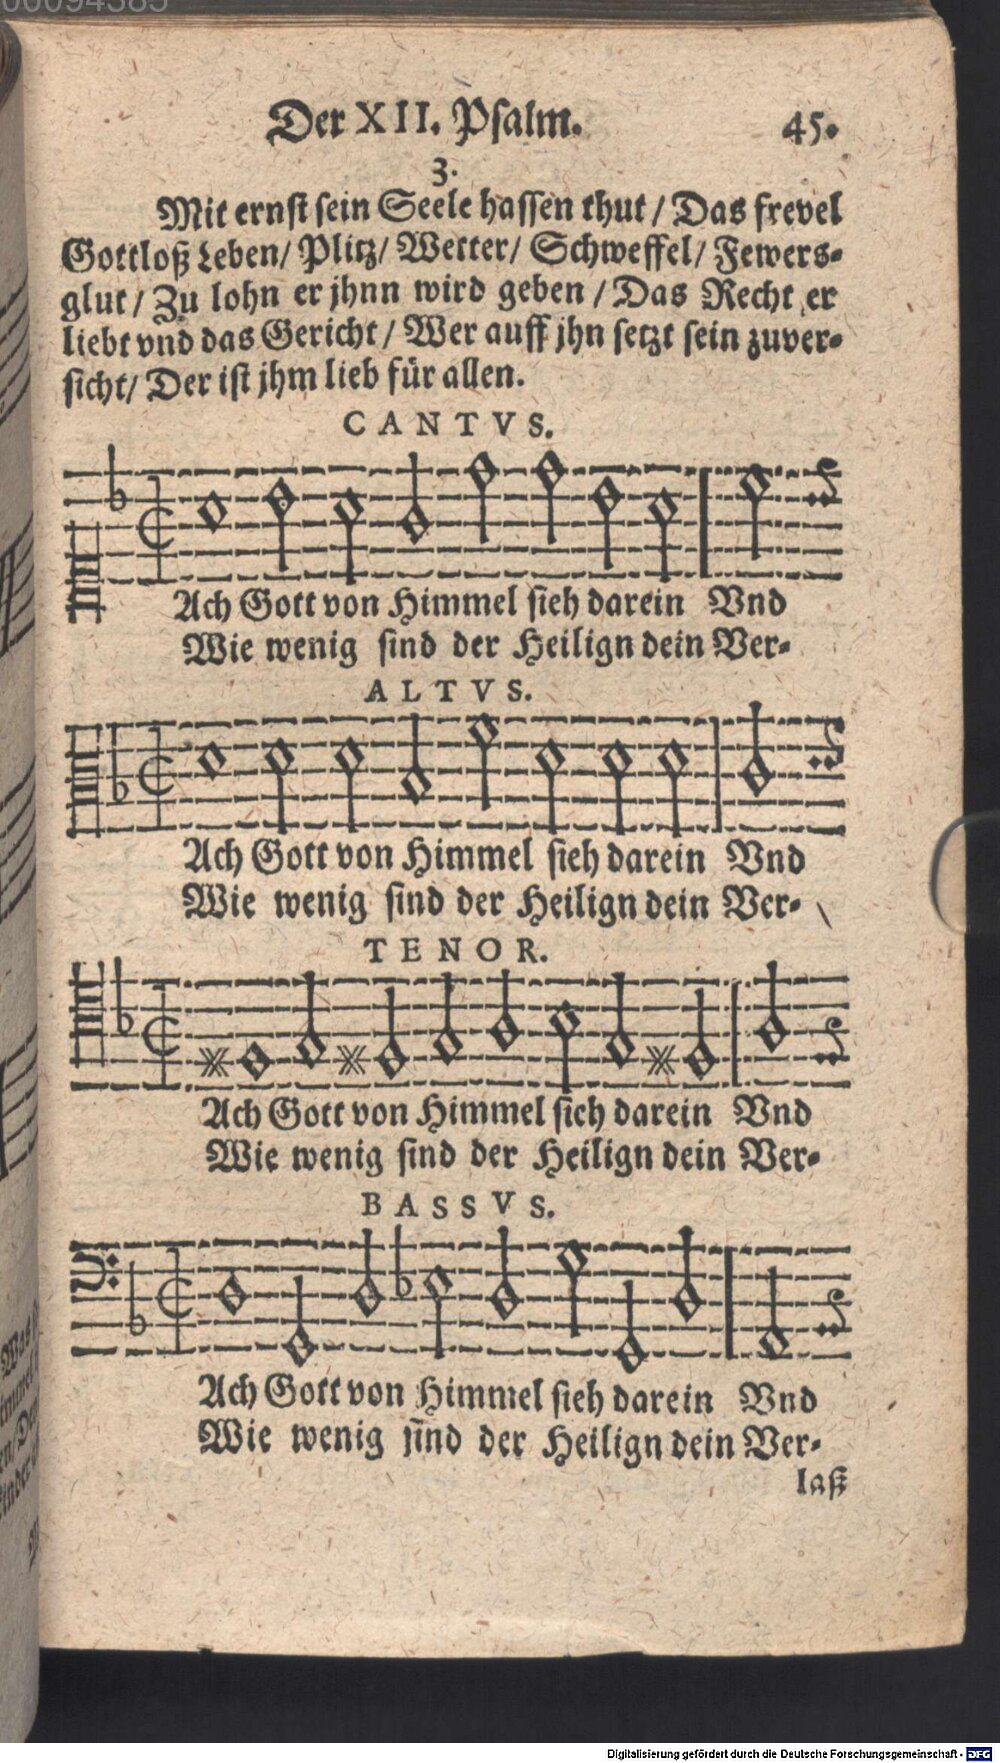 00094385
Der XII. Psalm. 45.
3.
Mit ernst sein Seele hassen thut / Das frevel
Gottloß Leben/ Plitz/ Wetter/ Schweffel/ Fewers-
glut / Zu lohn er jhnn wird geben / Das Recht er
liebt vnd das Gericht / Wer auff jhn setzt sein zuver-
sicht/ Der ist jhm lieb für allen.
CANTVS.
Ach Gott von Himmel sieh darein Vnd
Wie wenig sind der Heilign dein Ver-
ALTVS.
Ach Gott von Himmel sieh darein Vnd
Wie wenig sind der Heilign dein Ver-
TENOR.
Ach Gott von Himmel sieh darein Vnd
Wie wenig sind der Heilign dein Ver-
BASSVS.
Ach Gott von Himmel sieh darein Vnd
Wie wenig sind der Heilign dein Ver-
laß
Digitalisierung gefördert durch die Deutsche Forschungsgemeinschaft - DFG